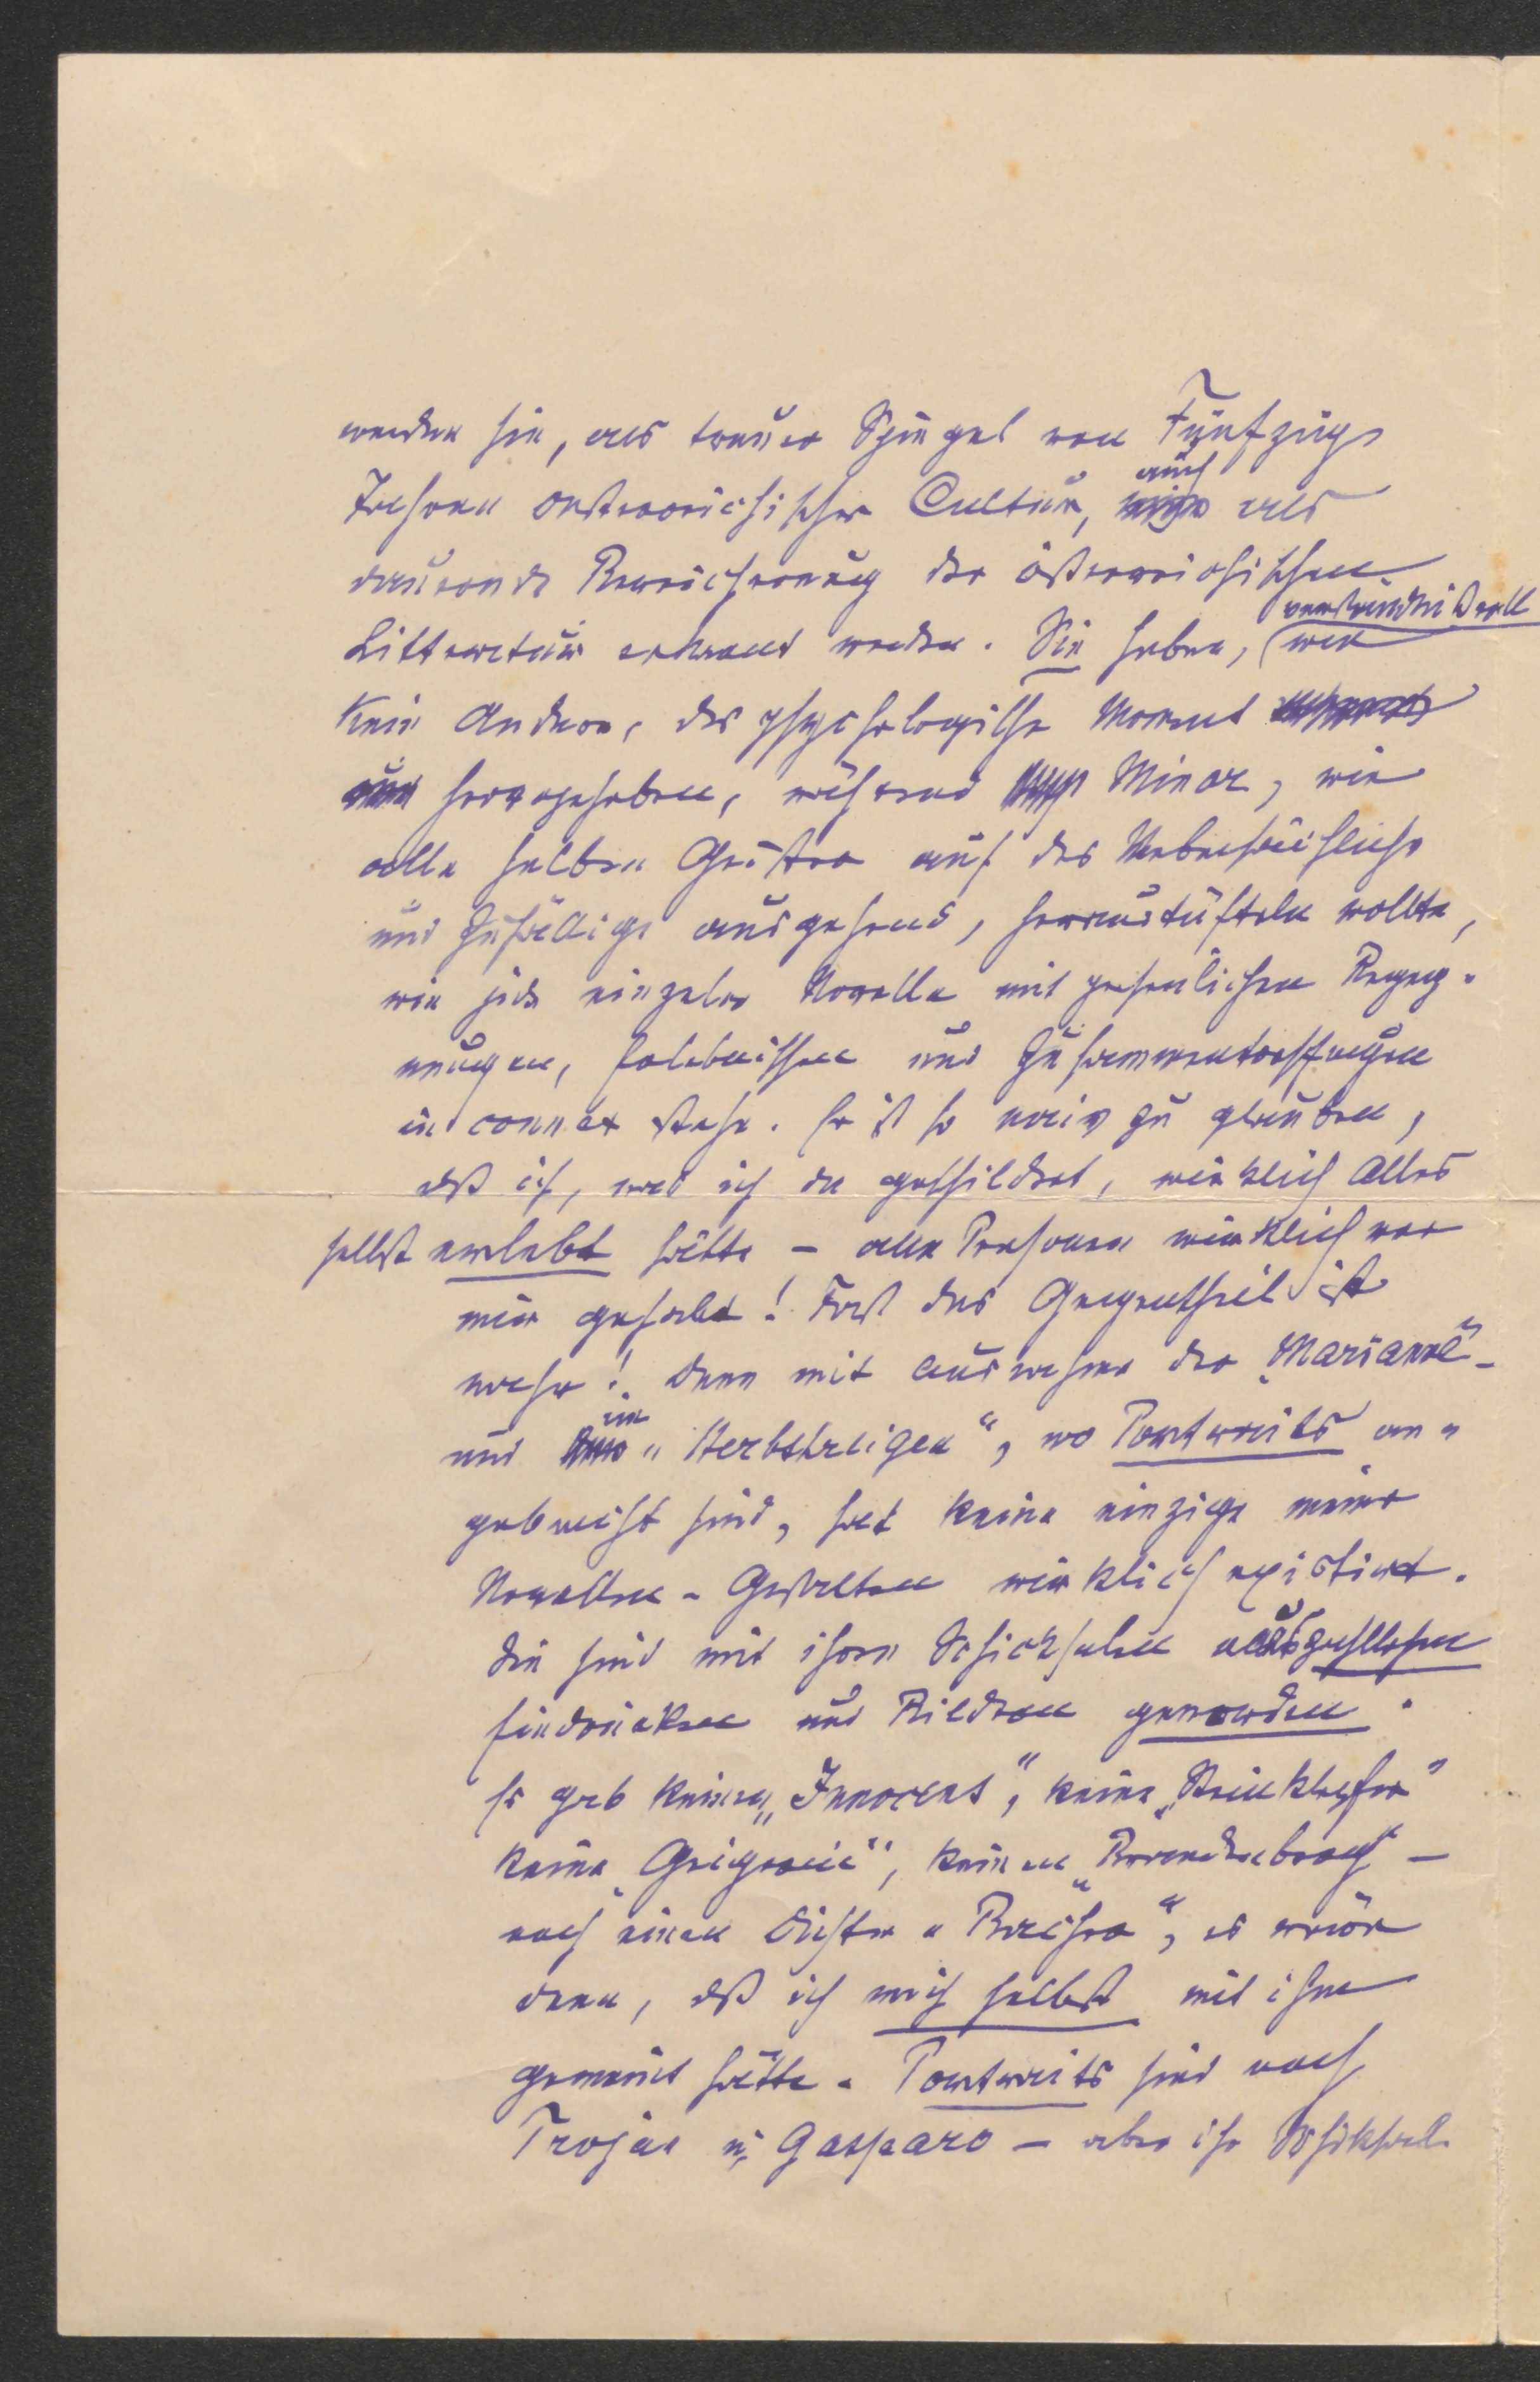 werden sie, als treuer Spiegel von Fünfzig
Jahren oesterreichischer Cultur, auch als
dauernde Bereicherung der österreichischen
Litteratur erkannt werden. Sie haben, verständnißvoll wie
kein Anderer, das psychologische Moment
hervorgehoben, während Minor, wie
alle halben Geister auf das Nebensächliche
und Zufällige ausgehend, heraustüfteln wollte,
wie jede einzelne Novelle mit persönlichen Begeg-
nungen, Erlebnissen und Zusammentreffungen
in connex stehe. Er ist so naiv zu glauben,
daß ich, was ich da geschildert, wirklich Alles
selbst erlebt hätte – alle Personen wirklich vor
mir gehabt! Fast das Gegentheil ist
wahr! Denn mit Ausnahme der „Marianne"-
und in „Herbstreigen", wo Portraits an-
gebracht sind, hat keine einzige meiner
Novellen-Gestalten wirklich existirt.
Sie sind mit ihren Schicksalen aus
Eindrücken und Bildern geworden.
Es gab keinen „Innocens", keine „Steinklopfer"
keine Ginevra", keinen
noch einen Dichter „Bacher", es wäre
denn, daß ich mich selbst mit ihm
gemeint hätte. Portraits sind noch
Trojan u. Gasparo – aber ihr Schiksal